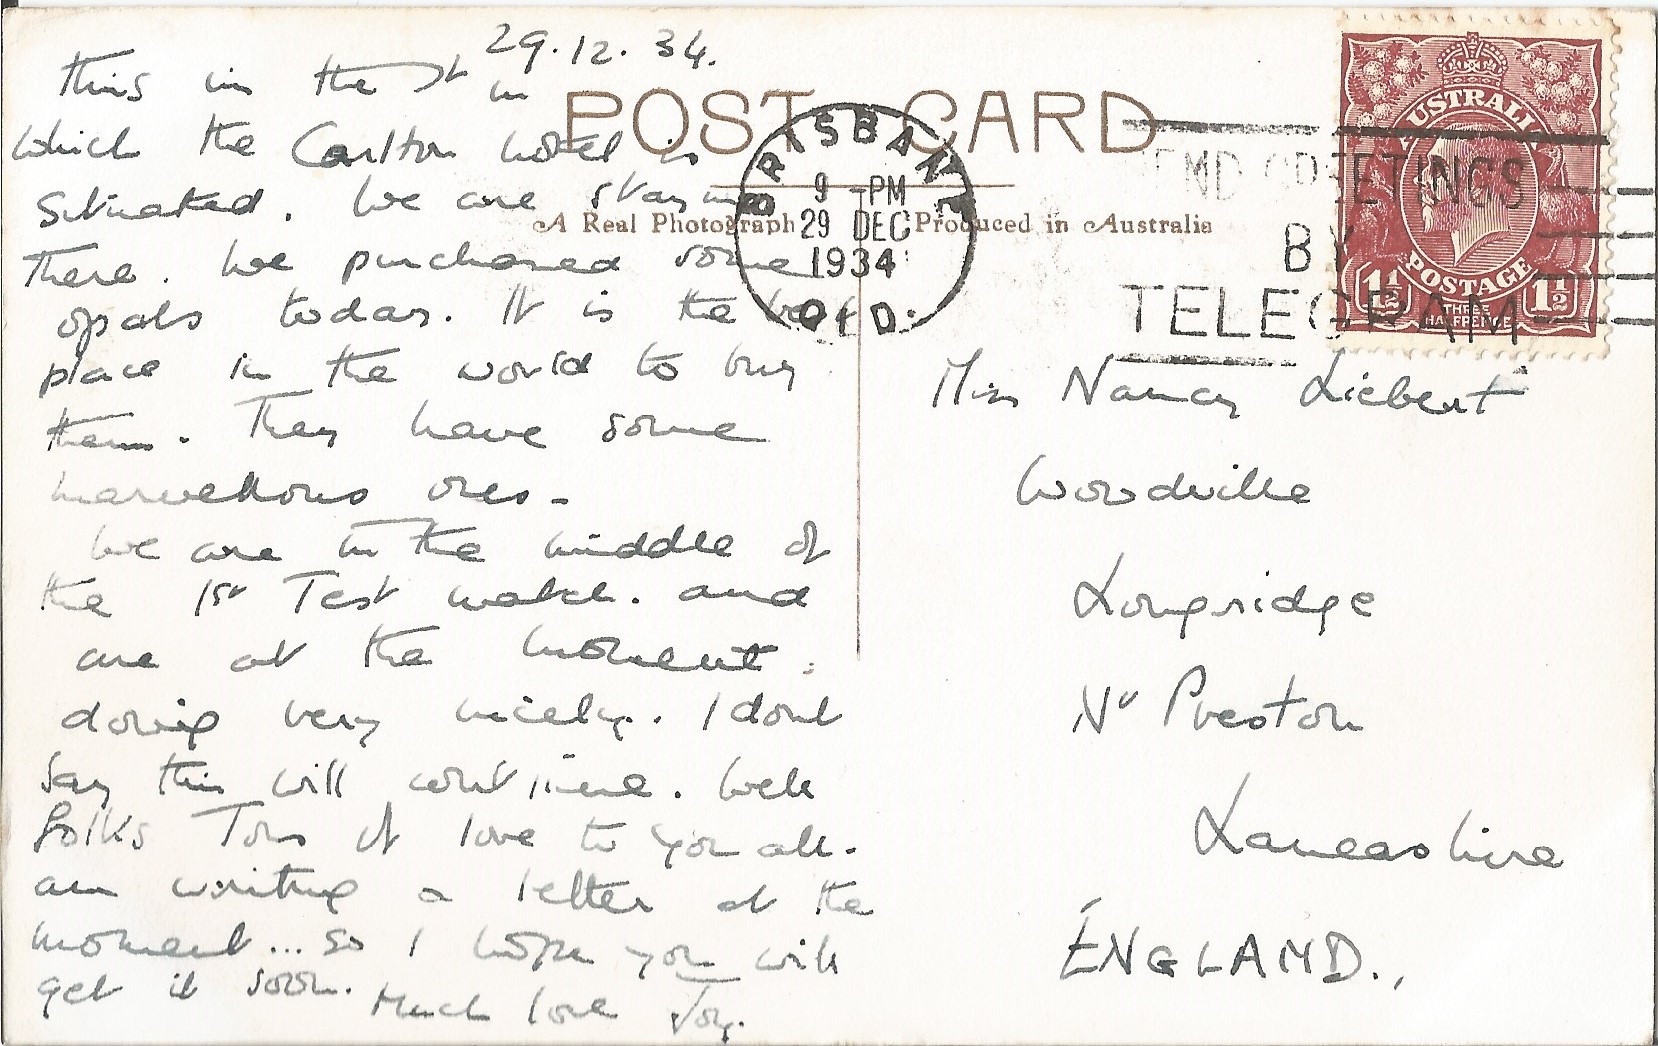 29.12.34.
This is the St in
which the Carlton hotel is
situated. We are staying
there. We purchased some
opals today. It is the best
place in the world to buy
them. They have some
marvellous ones -
We are in the middle of
the 1st Test match. and
are at the moment
doing very nicely. I dont
say this will continue. Well
folks Tons of love to you all.
am writing a letter at the
moment... so I hope you will
get it soon. Much love Joy.
POST CARD
A Real Photograph Produced in Australia
BRISBANE
9 - PM
29 DEC
1934
QLD.
SEND GREETINGS
BY
TELEGRAM
AUSTRALIA
POSTAGE
1½ THREE 1½
HALFPENCE
Miss Nancy Liebert
Woodville
Longridge
Nr Preston
Lancashire
ENGLAND.,